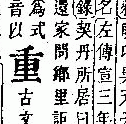 名左傳宣三年
錄契丹所居曰
還家問鄉里詎
為式
音以
重古文